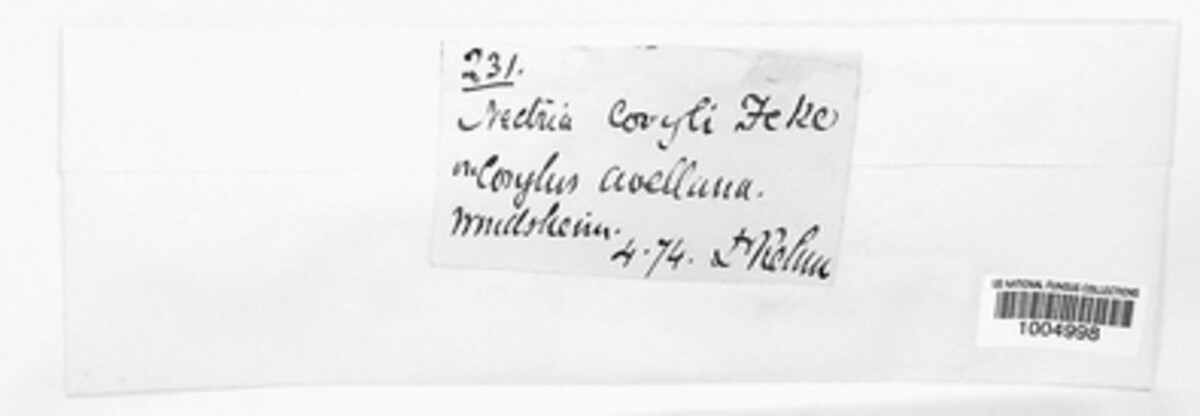 231.
Nectria Coryli Fckl
on Corylus avellana.
Windsheim.
4.74. Dr Rehm
US NATIONAL FUNGUS COLLECTIONS
1004998